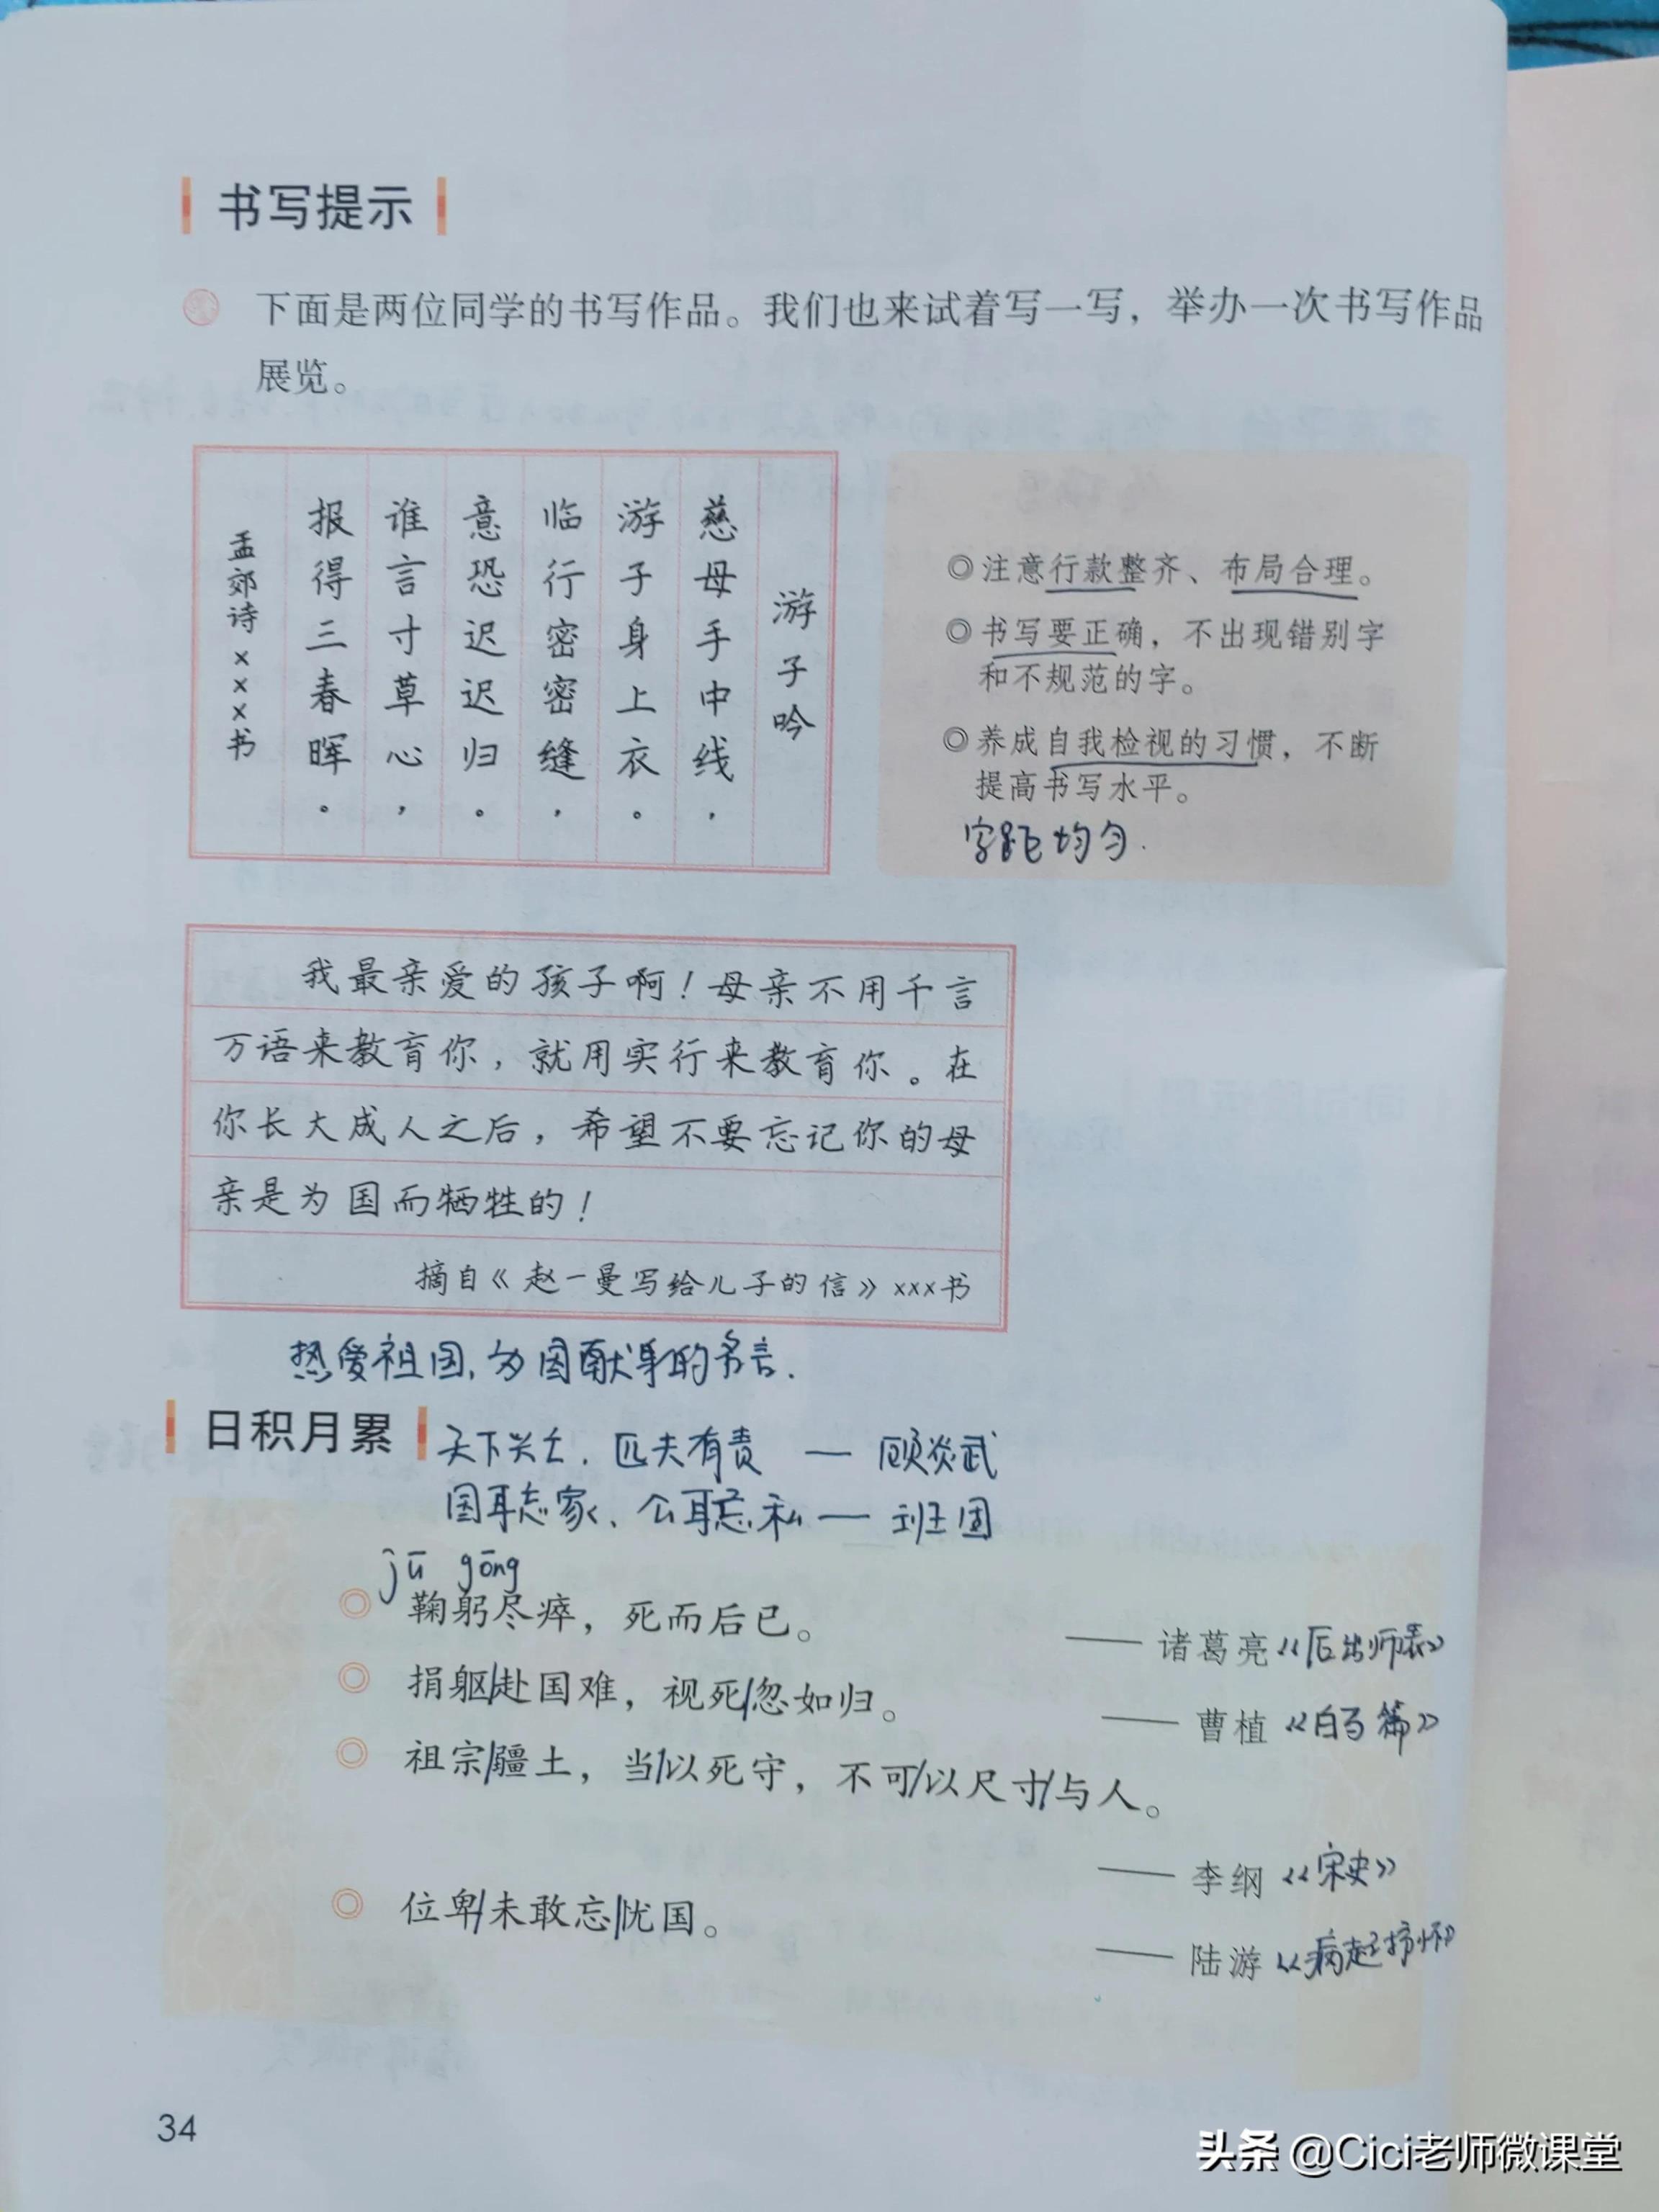 书写提示
下面是两位同学的书写作品。我们也来试着写一写，举办一次书写作品
展览。
游子吟
慈母手中线，
游子身上衣。
临行密密缝，
意恐迟迟归。
谁言寸草心，
报得三春晖。
孟郊诗×××书
◎注意行款整齐、布局合理。
◎书写要正确，不出现错别字
和不规范的字。
◎养成自我检视的习惯，不断
提高书写水平。
字距均匀.
我最亲爱的孩子啊！母亲不用千言
万语来教育你，就用实行来教育你。在
你长大成人之后，希望不要忘记你的母
亲是为国而牺牲的！
摘自《赵一曼写给儿子的信》×××书
热爱祖国,为国献身的名言.
日积月累
天下兴亡.匹夫有责 — 顾炎武
国耳忘家、公耳忘私 — 班固
jū gōng
◎ 鞠躬尽瘁，死而后已。
——诸葛亮《后出师表》
◎ 捐躯/赴国难，视死/忽如归。
——曹植《白马篇》
◎ 祖宗/疆土，当/以死守，不可/以尺寸/与人。
——李纲《宋史》
◎ 位卑/未敢忘/忧国。
——陆游《病起书怀》
34
头条 @Cici老师微课堂